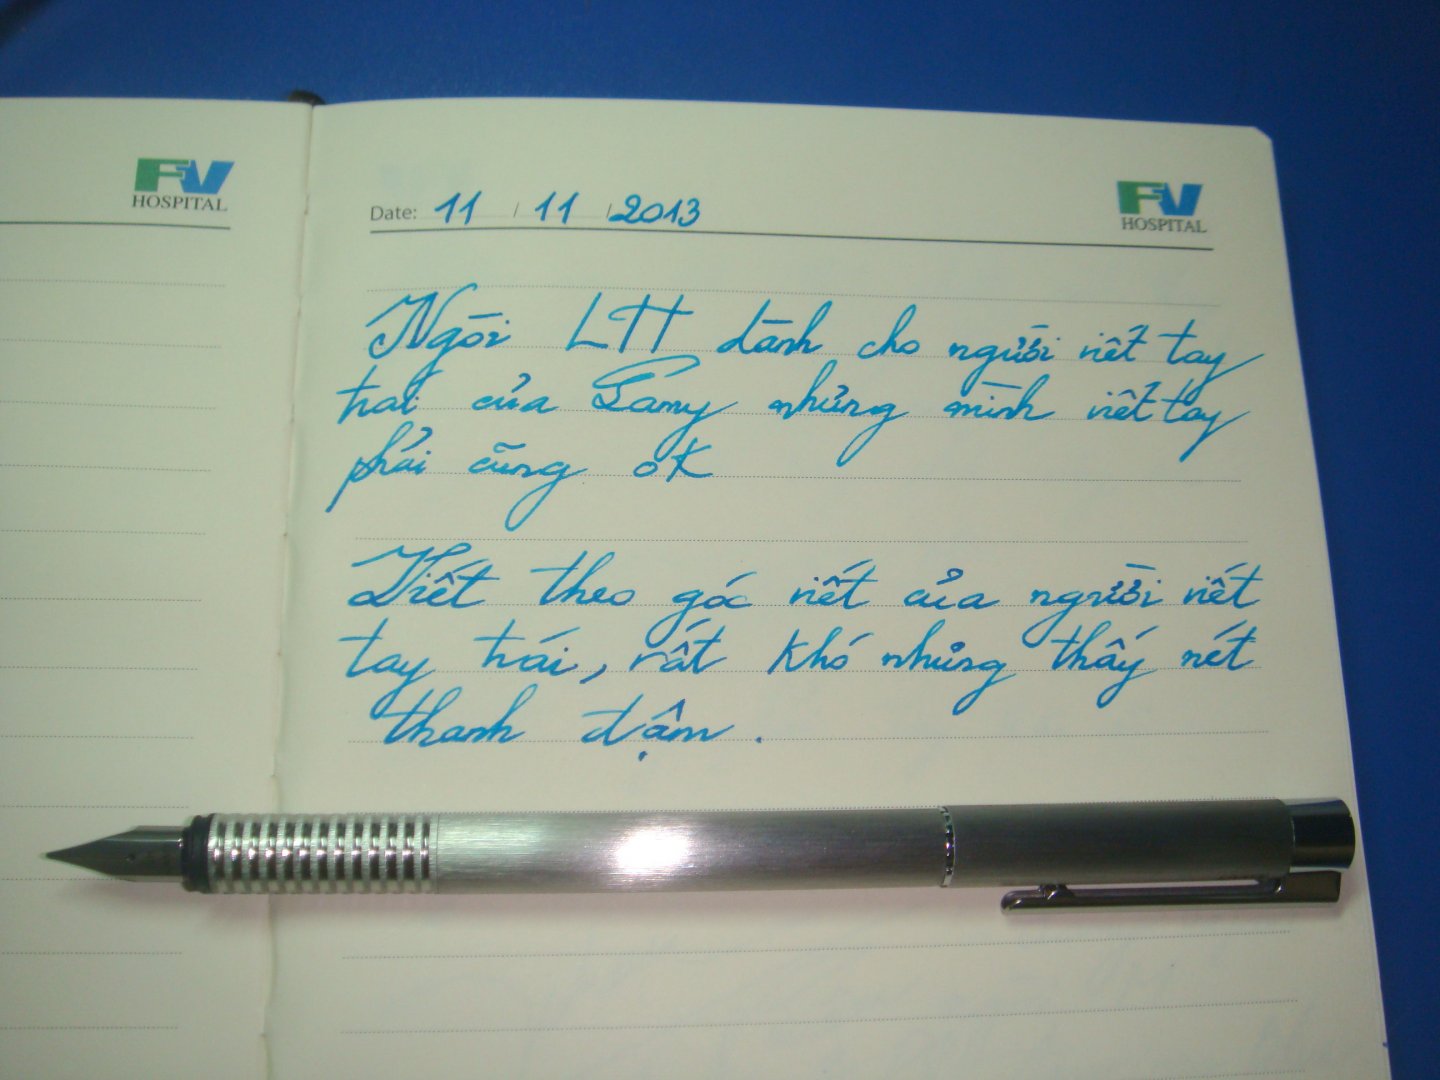 FV
HOSPITAL
Date: 11 / 11 / 2013
FV
HOSPITAL
Ngòi LTT dành cho người viết tay
trái của Lamy nhưng mình viết tay
phải cũng oK
Viết theo góc viết của người viết
tay trái, rất khó nhưng thấy nét
thanh đậm .